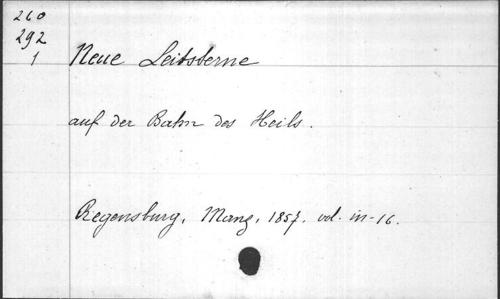 260
292
1
Neue Leitsterne
auf der Bahn des Heils.
Regensburg, Manz, 1857. vol. in-16.